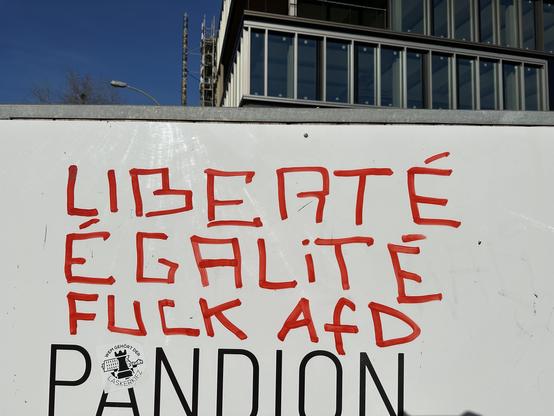 LIBERTÉ
ÉGALiTÉ
FUCK AfD
WEM GEHÖRT DER
LASKERKIEZ
PANDION